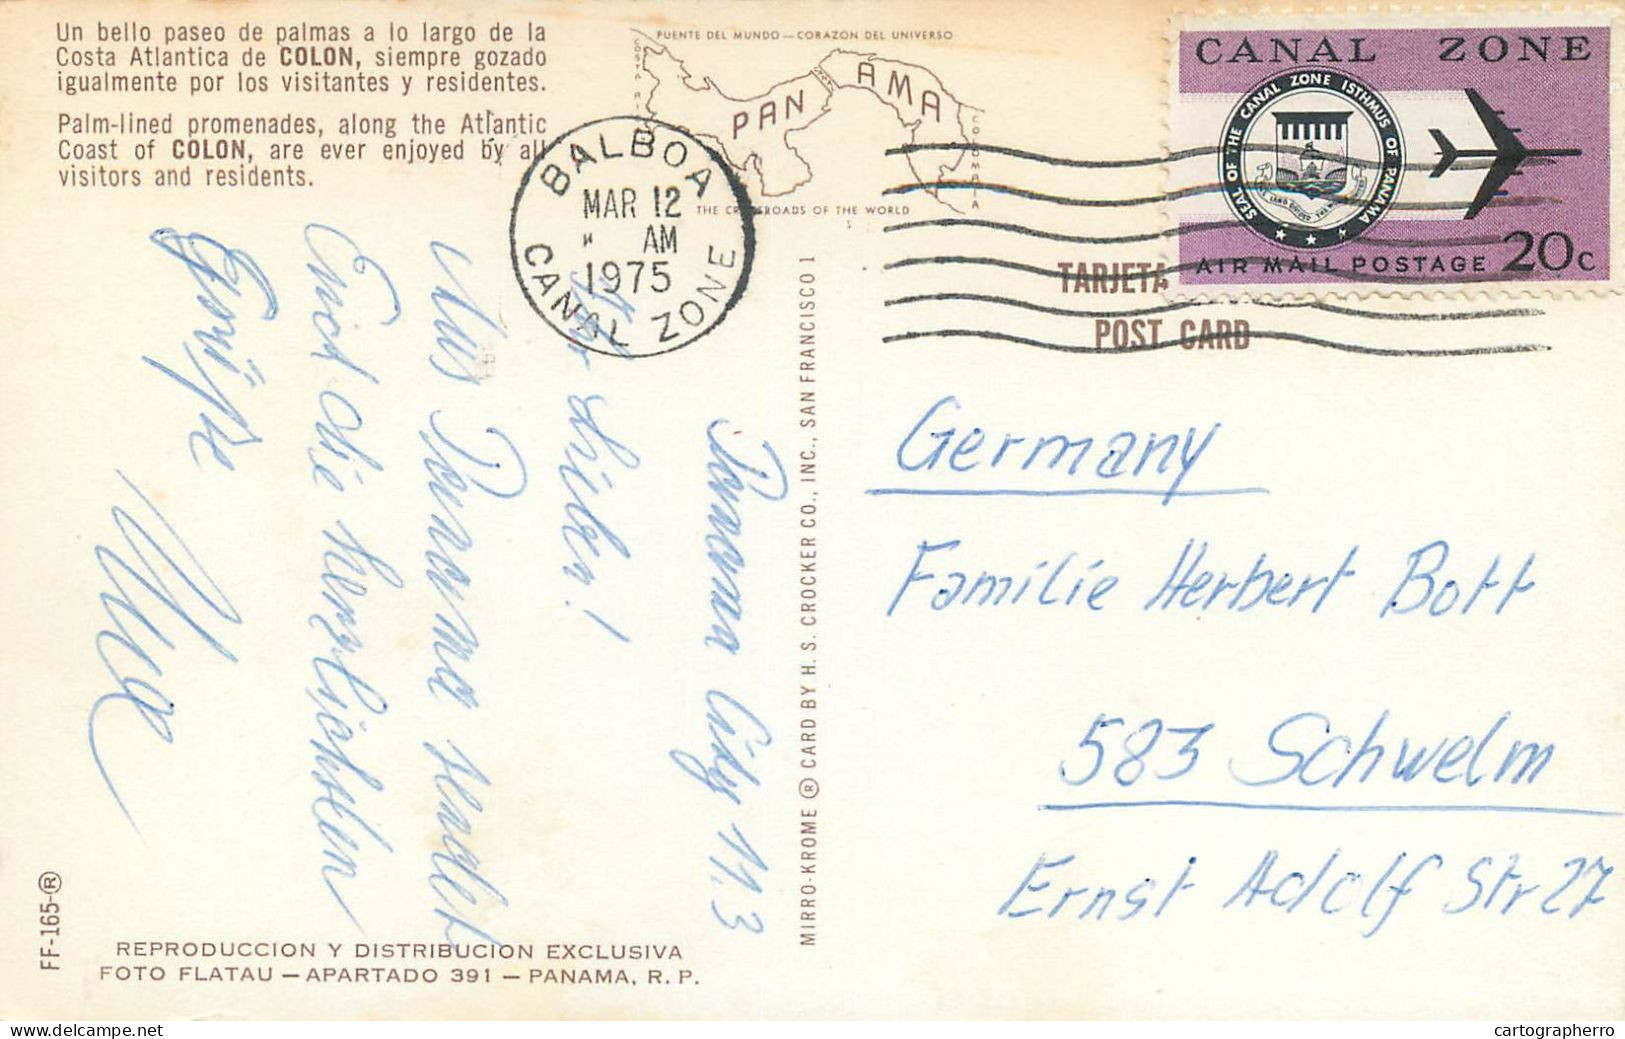 Un bello paseo de palmas a lo largo de la
Costa Atlantica de COLON, siempre gozado
igualmente por los visitantes y residentes.
Palm-lined promenades, along the Atlantic
Coast of COLON, are ever enjoyed by all
visitors and residents.
PUENTE DEL MUNDO — CORAZON DEL UNIVERSO
PANAMA
COLOMBIA
THE CROSSROADS OF THE WORLD
BALBOA
MAR 12
AM
1975
CANAL ZONE
CANAL ZONE
SEAL OF THE CANAL ZONE ISTHMUS OF PANAMA
AIR MAIL POSTAGE 20c
TARJETA
POST CARD
Panama City 11.3
Ihr Lieben!
Aus Panama sendet
Euch die herzlichsten
Grüße
MIRRO-KROME ® CARD BY H. S. CROCKER CO., INC., SAN FRANCISCO 1
Germany
Familie Herbert Bott
583 Schwelm
Ernst Adolf Str 27
FF-165-®
REPRODUCCION Y DISTRIBUCION EXCLUSIVA
FOTO FLATAU — APARTADO 391 — PANAMA, R. P.
Own your own website today
cartographerro